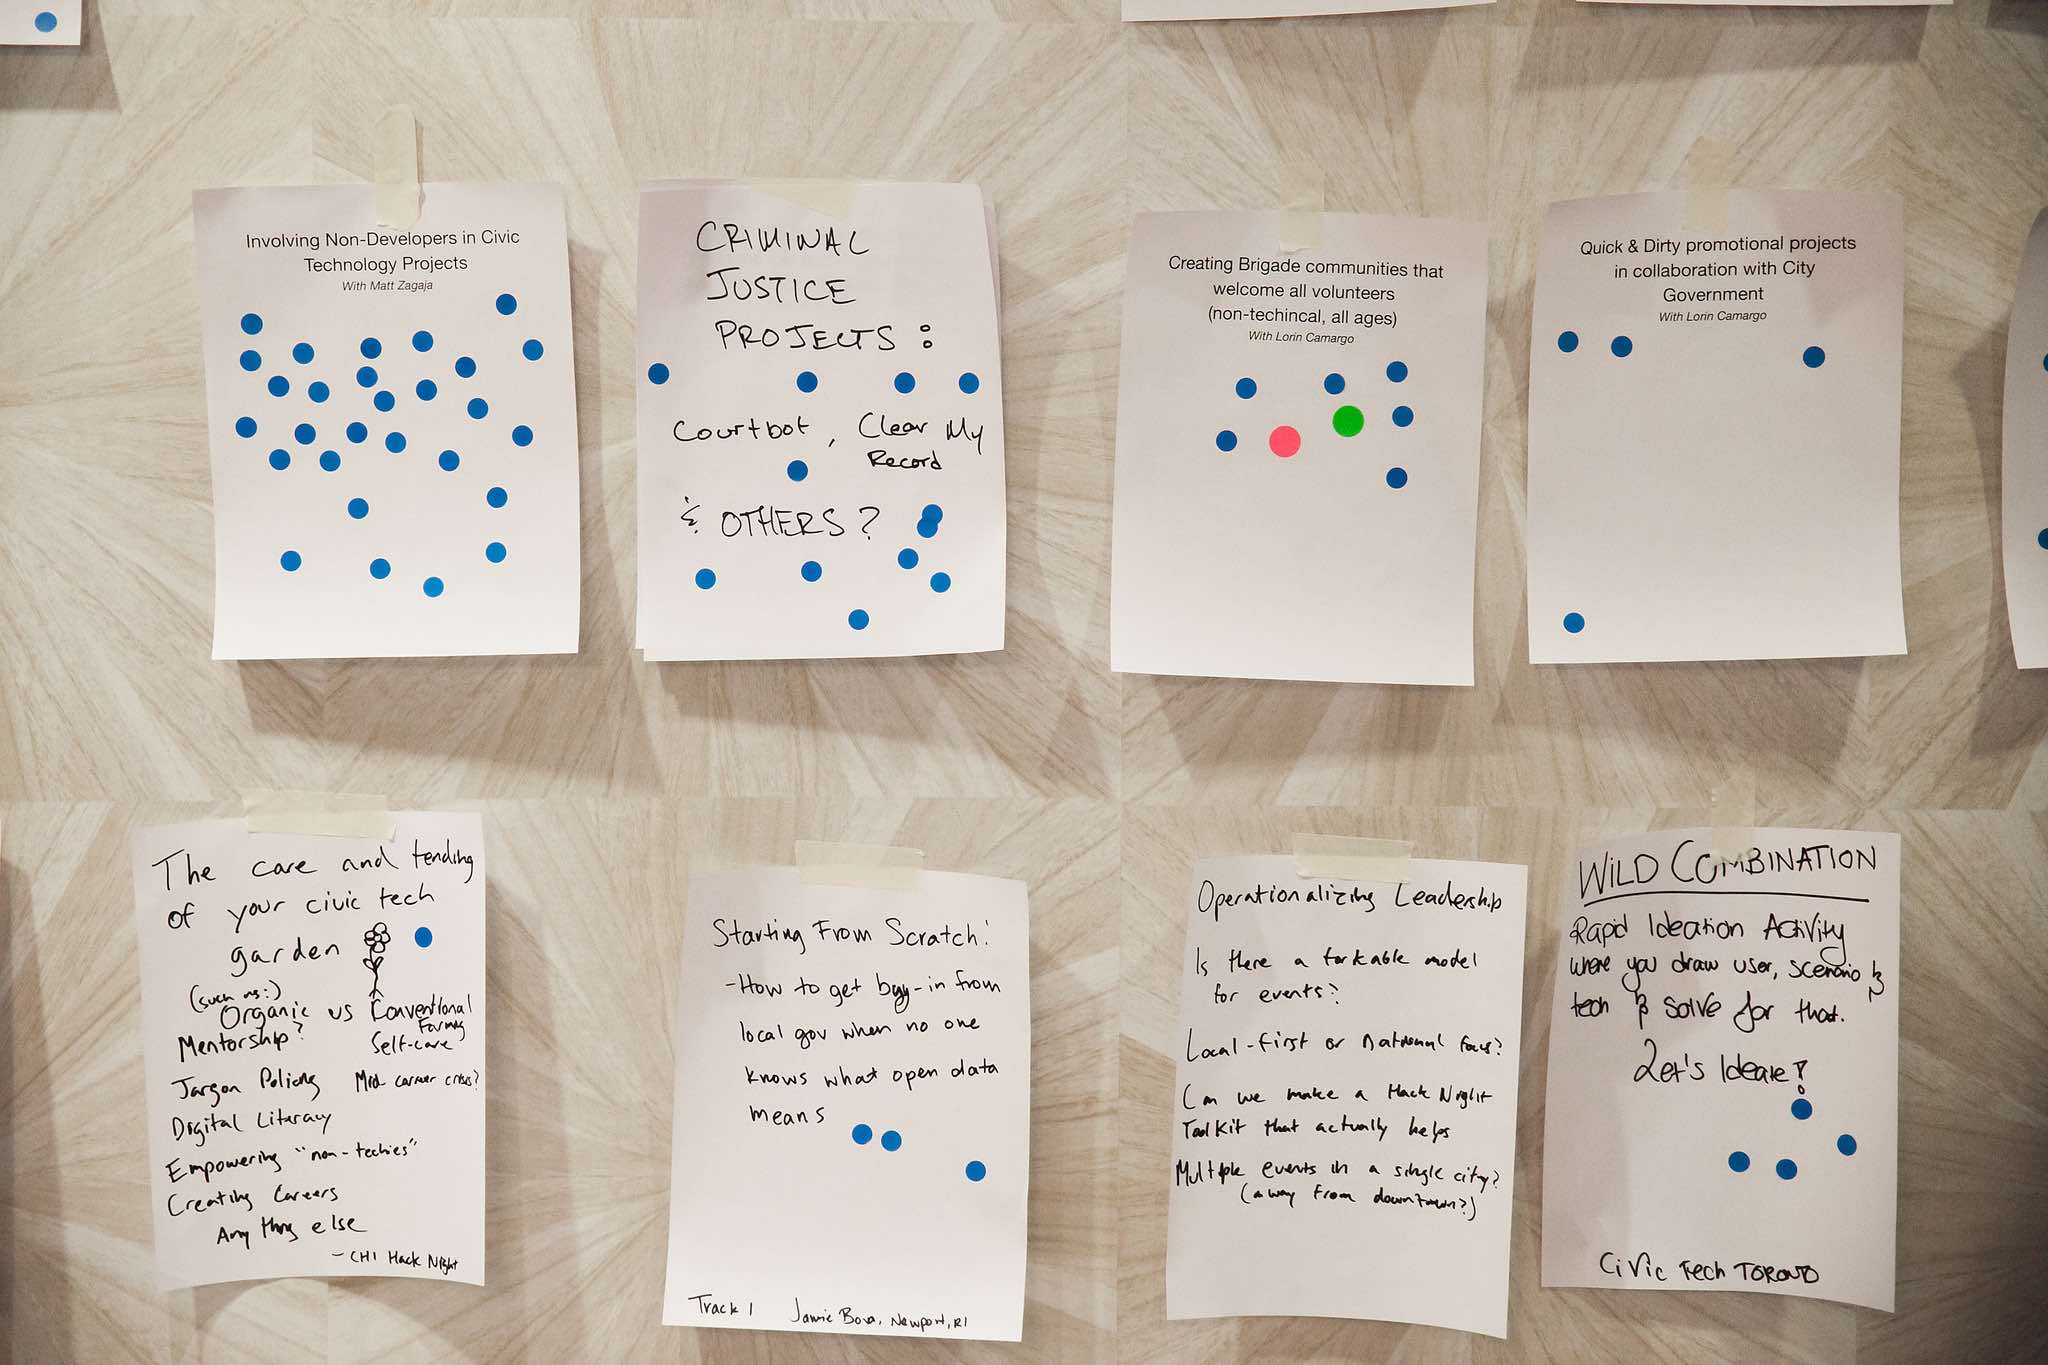 Involving Non-Developers in Civic
Technology Projects
With Matt Zagaja
CRIMINAL
JUSTICE
PROJECTS:
Courtbot, Clear My
Record
& OTHERS?
Creating Brigade communities that
welcome all volunteers
(non-techincal, all ages)
With Lorin Camargo
Quick & Dirty promotional projects
in collaboration with City
Government
With Lorin Camargo
The care and tending
of your civic tech
garden
(such as:)
Organic vs Conventional
Farming
Mentorship?
Self-care
Jargon Policing
Mid career crisis?
Digital Literacy
Empowering "non-techies"
Creating Careers
Anything else
- CHI Hack Night
Starting From Scratch!
- How to get buy-in from
local gov when no one
knows what open data
means
Track 1 Jamie Bova, Newport, RI
Operationalizing Leadership
Is there a forkable model
for events?
Local-first or national focus?
Can we make a Hack Night
ToolKit that actually helps
Multiple events in a single city?
(away from downtown?)
WILD COMBINATION
Rapid Ideation Activity
where you draw user, scenario &
tech & solve for that.
Let's Ideate!
Civic Tech TORONTO